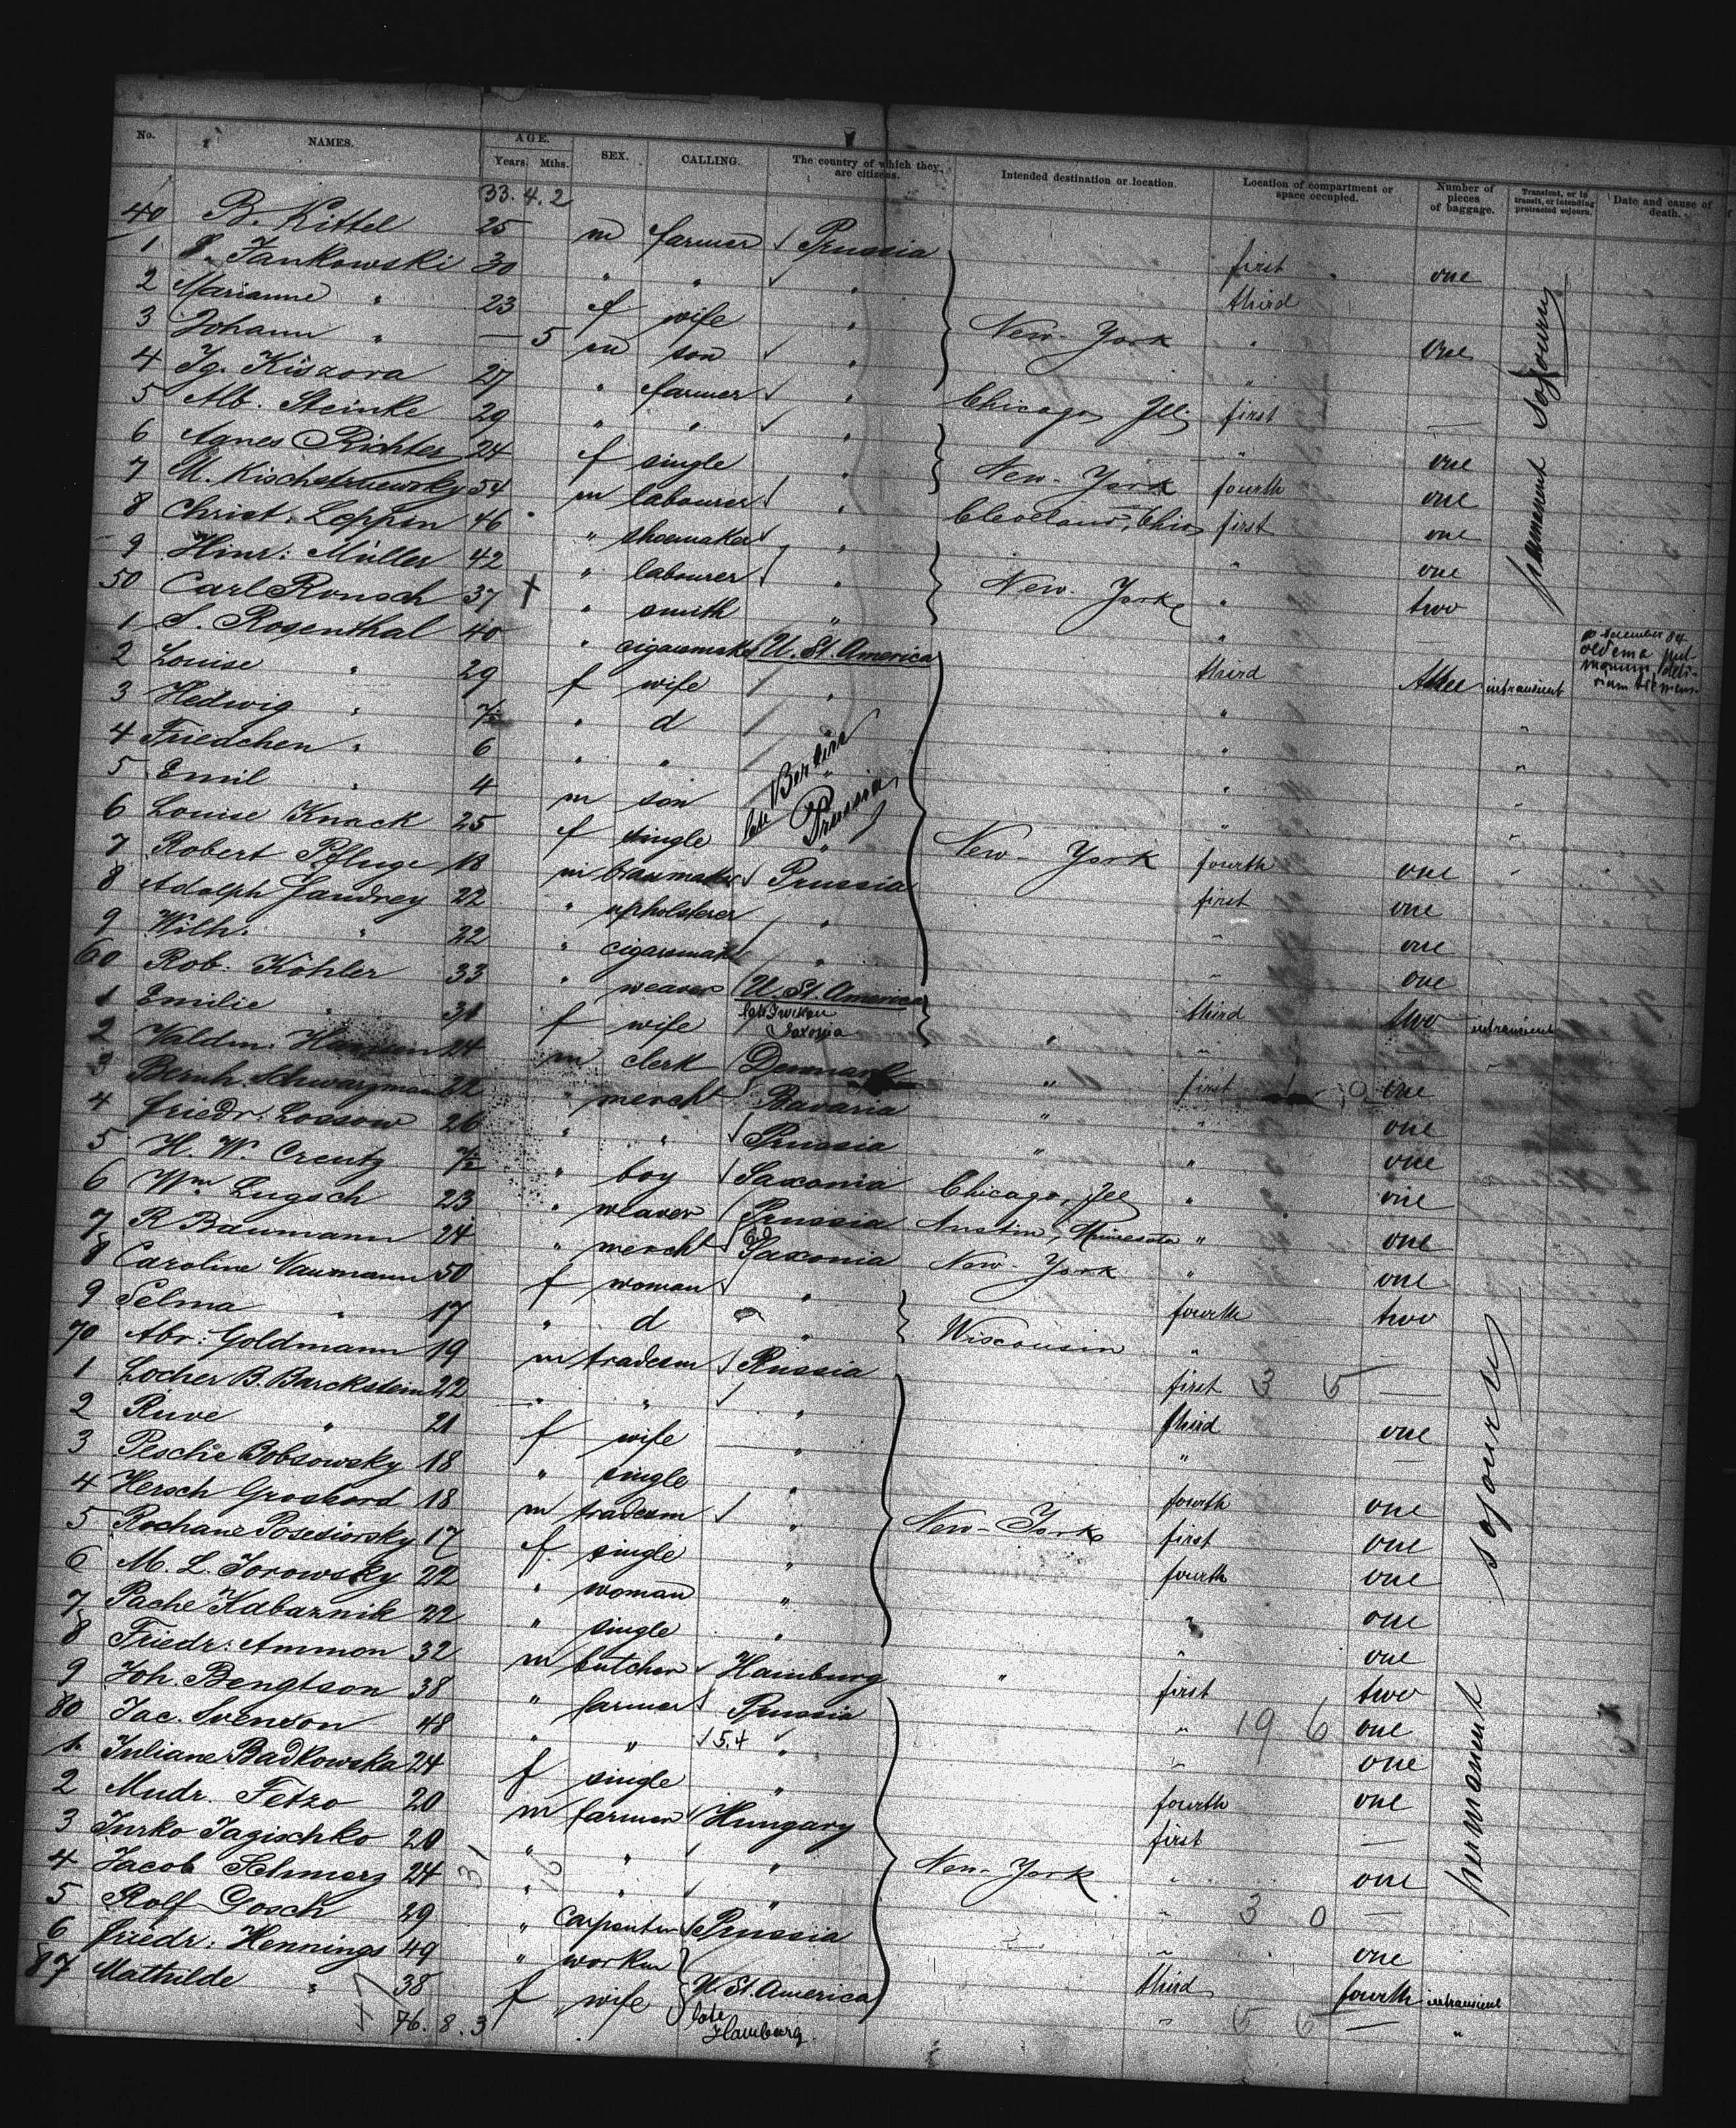 No. NAMES. AGE. SEX. CALLING. The country of which they are citizens. Intended destination or location. Location of compartment or space occupied. Number of pieces of baggage. Transient, or in transit, or intending protracted sojourn. Date and cause of death.
Years. Mths.
33.4.2
40 B. Kittel 25 m farmer Prussia first one
1 Jankowski 30 " " " third
2 Marianne " 23 f wife " New-York " one
3 Johann " — 5 m son " "
4 Ig. Kiszora 27 " farmer " Chicago, Ill first —
5 Alb. Steinke 29 " " " " one
6 Agnes Richter 24 f single " New-York fourth one
7 M. 54 m labourer " Cleveland, Ohio first one
8 Christ. Leppin 46 " shoemaker " " one
9 Hinr: Müller 42 " labourer " New-York " two
50 Carl Ronsch 37 + " smith " " —
permanent sojourn
december 84 oedema
1 S. Rosenthal 40 " cigarmaker U. St. America third three intransient
2 Louise " 29 f wife " " "
3 Hedwig " 7/12 " d "
4 Friedchen " 6 " " " "
5 Emil " 4 m son " "
late Berlin Prussia
6 Louise Knack 25 f single " New-York fourth one
7 Robert Pfluge 18 m Prussia first one
8 Adolph Jandrey 22 " upholsterer " " one
9 Wilh: " 22 " cigarmaker " " one
60 Rob. Köhler 33 " weaver U. St. America third two intransient
1 Emilie " 31 f wife late Saxonia " " — "
2 Valdm. 24 m clerk Denmark " first one
3 Bernh. Schwarzmann 22 " mercht Bavaria " " one
4 Friedr: Lossow 26 " " Prussia " " one
5 H. W. Creutz 7/12 " boy Saxonia Chicago, Ill " one
6 Wm Lugsch 23 " weaver Prussia Austin, Minesota " one
7 R Baumann 24 " mercht Saxonia New-York " one
8 Caroline Naumann 50 f woman " Wisconsin fourth two
9 Selma " 17 " d " " —
70 Abr: Goldmann 19 m tradesm Russia first 3 5 —
1 Locher B. Barckstein 22 " " " third one
2 Ruve " 21 f wife " " —
3 Pesche Bobsowsky 18 " single " fourth one
4 Hersch Grosbord 18 m tradesm " New-York first one
5 Rochane 17 f single " fourth one
6 M. L. Jorowsky 22 " woman " " one
7 Pache Kabaznik 22 " single " " one
8 Friedr: Ammon 32 m butcher Hamburg " first two
9 Joh. Bengtson 38 " farmer Prussia " 19 6 one
80 Jac. Svenson 48 " " 5.4 " " one
1 Juliane Badkowska 24 f single " fourth one
2 Mudr. Fetzo 20 m farmer Hungary first —
3 Jurko Jagischko 20 " " " New-York " one
4 Jacob Schmerz 24 " " " " 3 0 —
5 Rolf Gosch 29 " carpenter Prussia " one
6 Friedr: Hennings 49 " workm U St. America third fourth intransient
87 Mathilde " 38 f wife late Hamburg " 5 6 — "
permanent sojourn
76.8.3